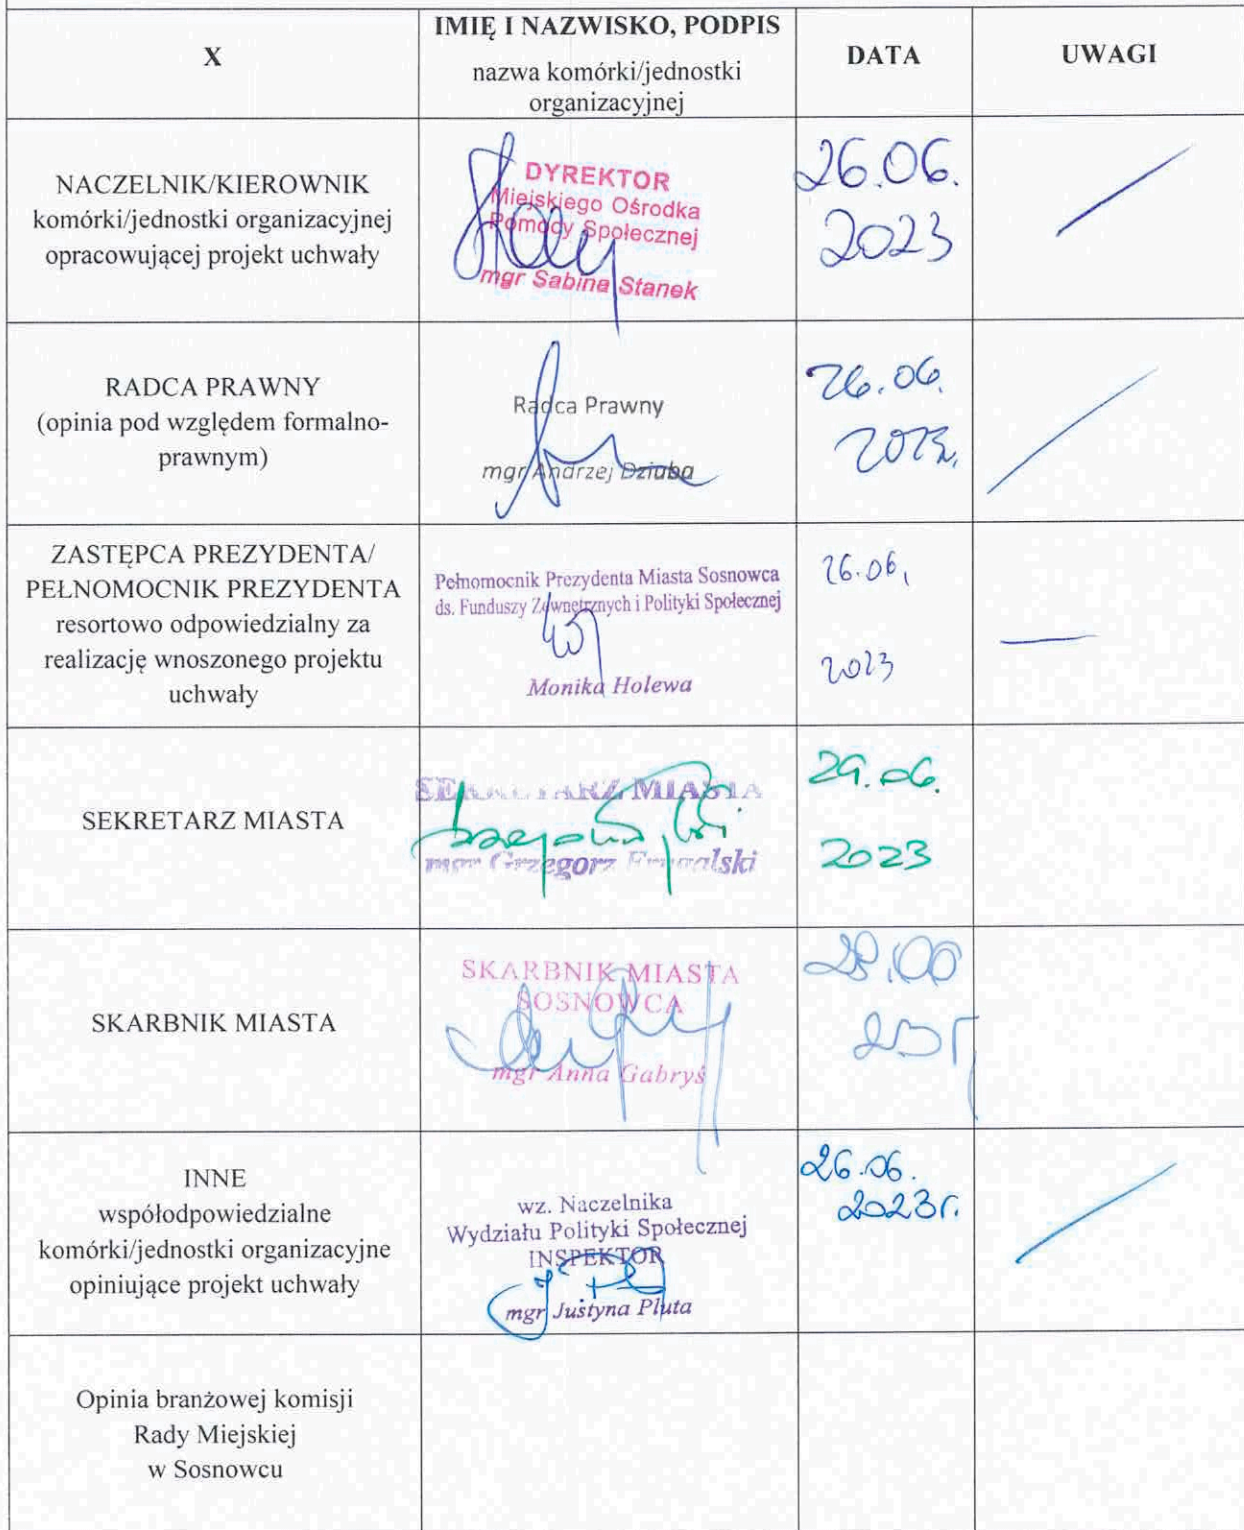 X
IMIĘ I NAZWISKO, PODPIS
nazwa komórki/jednostki
organizacyjnej
DATA
UWAGI
NACZELNIK/KIEROWNIK
komórki/jednostki organizacyjnej
opracowującej projekt uchwały
DYREKTOR
Miejskiego Ośrodka
Pomocy Społecznej
mgr Sabina Stanek
26.06.
2023
RADCA PRAWNY
(opinia pod względem formalno-
prawnym)
Radca Prawny
mgr Andrzej Dziuba
26.06.
ZASTĘPCA PREZYDENTA/
PEŁNOMOCNIK PREZYDENTA
resortowo odpowiedzialny za
realizację wnoszonego projektu
uchwały
Pełnomocnik Prezydenta Miasta Sosnowca
ds. Funduszy Zewnętrznych i Polityki Społecznej
Monika Holewa
26.06,
2023
SEKRETARZ MIASTA
SEKRETARZ MIASTA
mgr Grzegorz
29.06.
2023
SKARBNIK MIASTA
SKARBNIK MIASTA
SOSNOWCA
mgr Anna Gabryś
INNE
współodpowiedzialne
komórki/jednostki organizacyjne
opiniujące projekt uchwały
wz. Naczelnika
Wydziału Polityki Społecznej
INSPEKTOR
mgr Justyna Pluta
26.06.
2023r.
Opinia branżowej komisji
Rady Miejskiej
w Sosnowcu